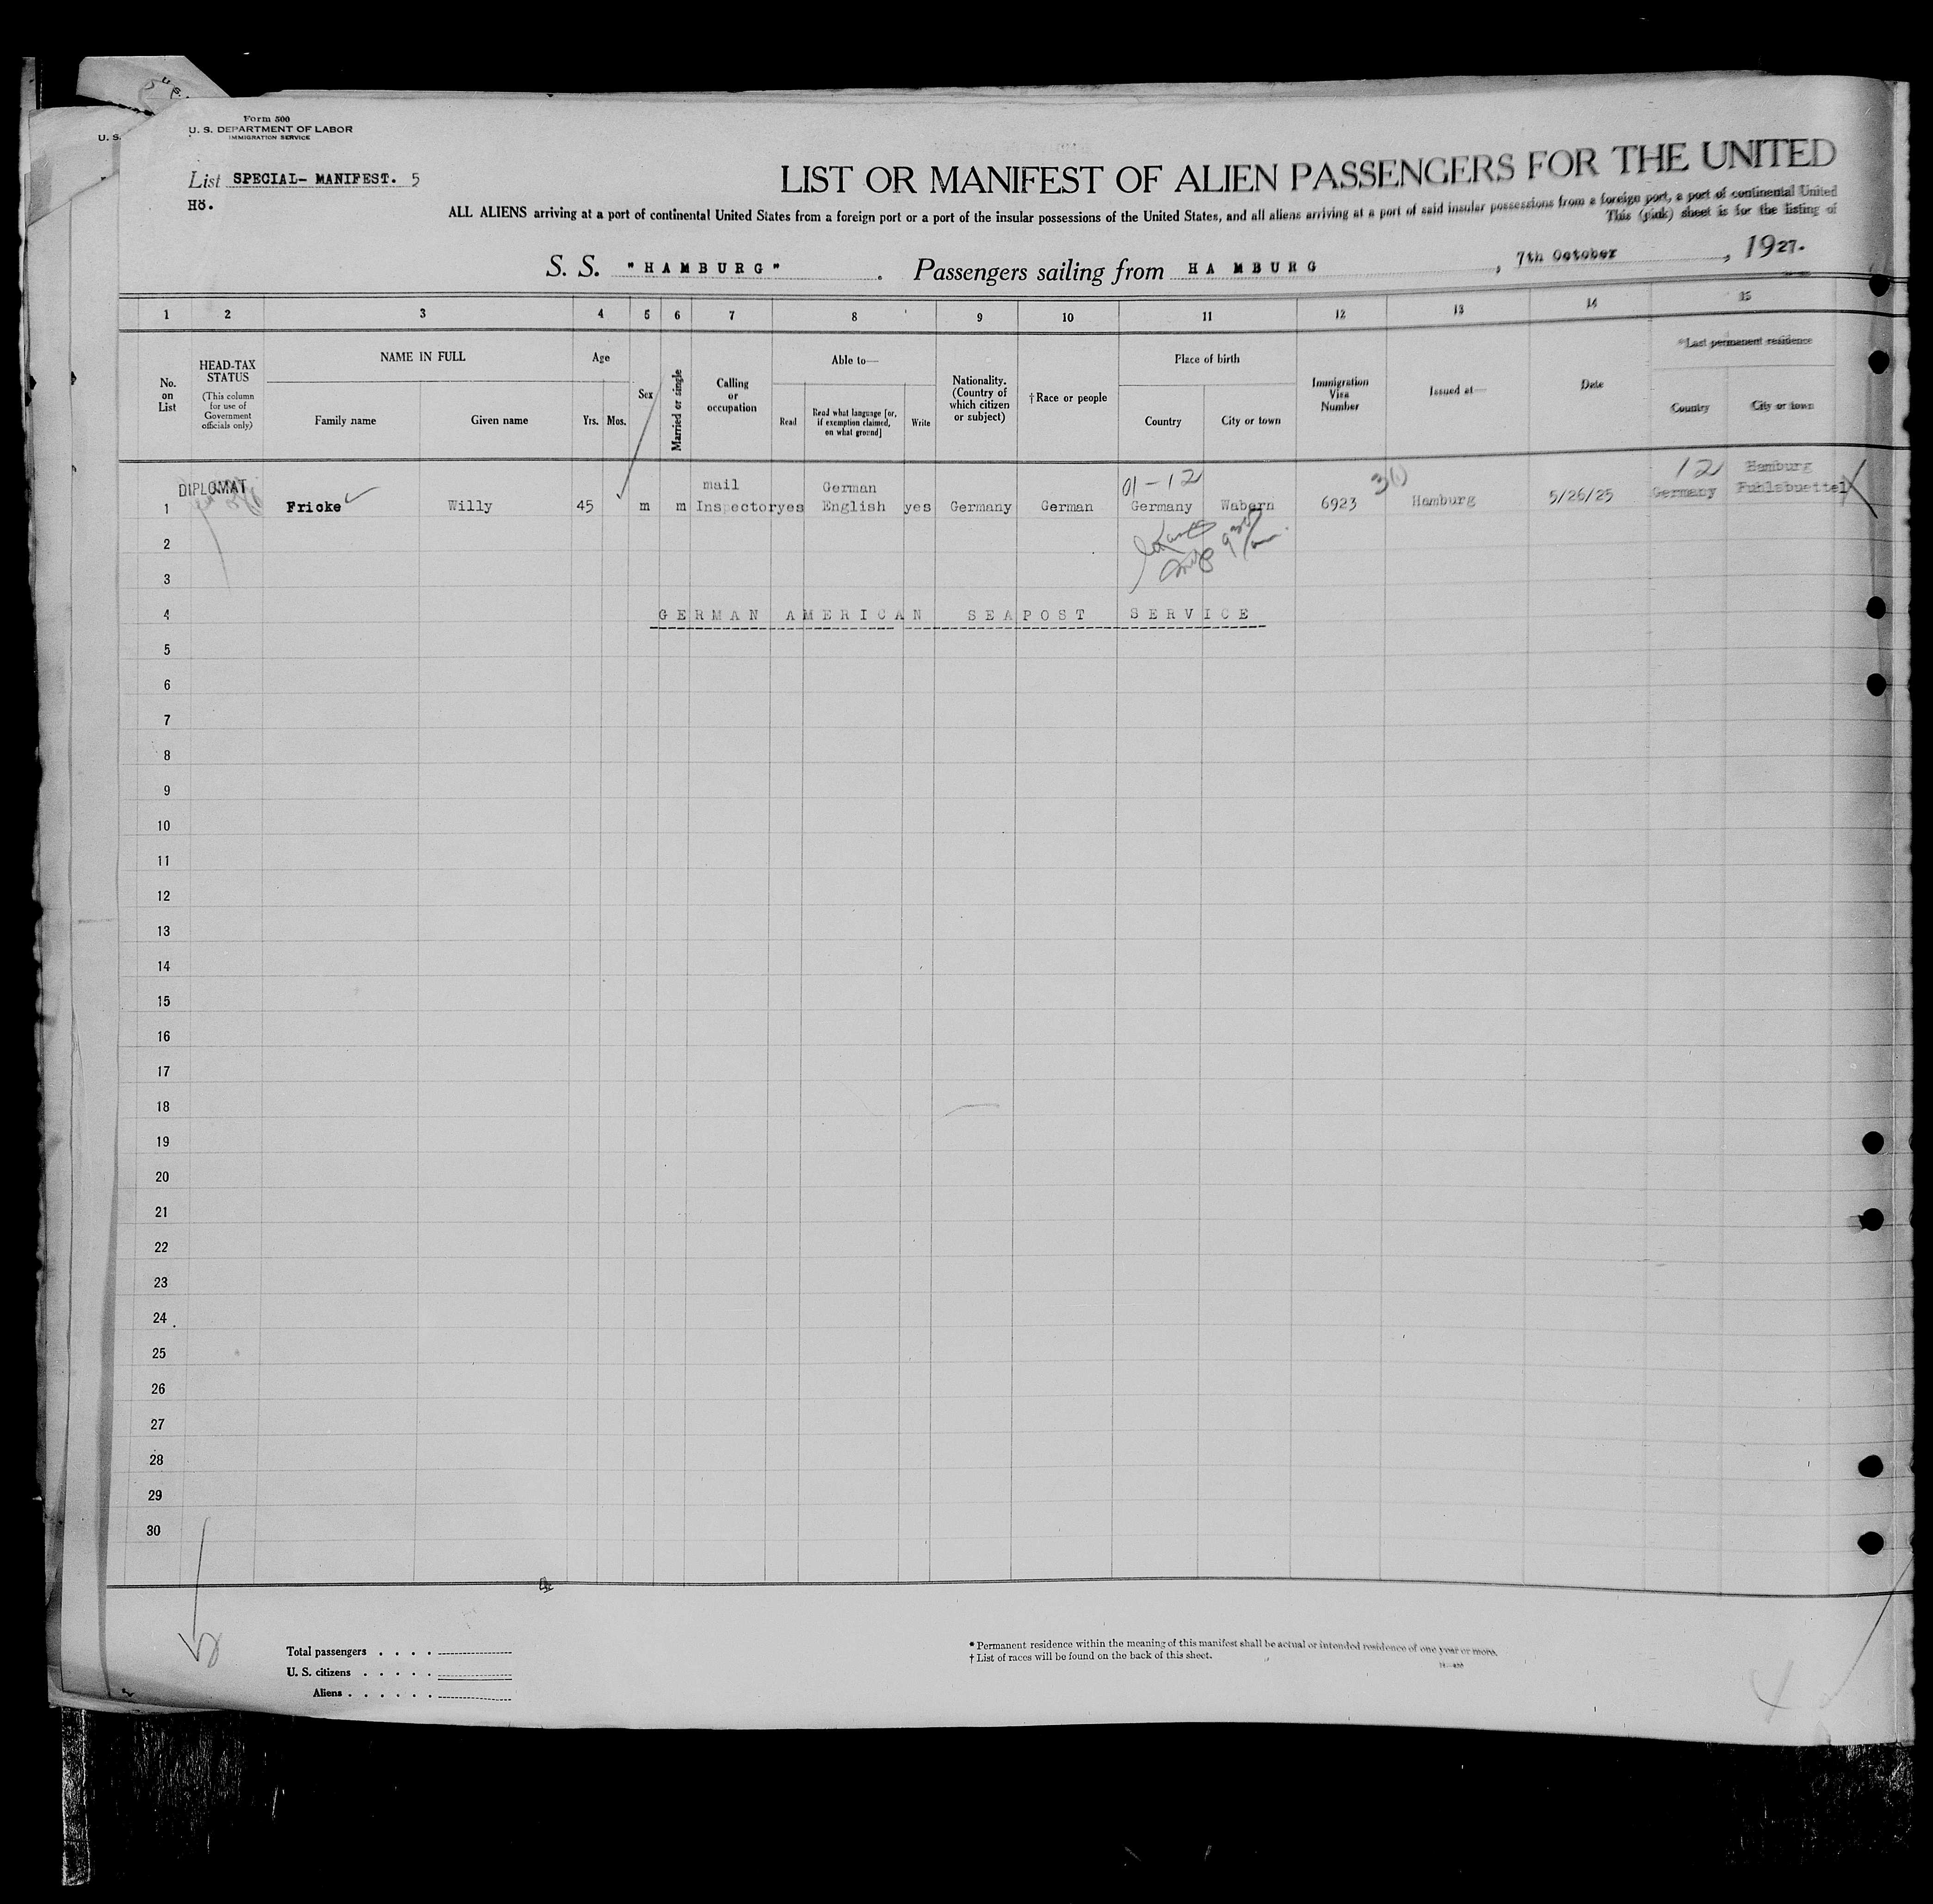 U. S.
Form 500
U. S. DEPARTMENT OF LABOR
IMMIGRATION SERVICE
U. S.
List SPECIAL- MANIFEST. 5
Hö.
LIST OR MANIFEST OF ALIEN PASSENGERS FOR THE UNITED
ALL ALIENS arriving at a port of continental United States from a foreign port or a port of the insular possessions of the United States, and all aliens arriving at a port of said insular possessions from a foreign port, a port of continental United
This (pink) sheet is for the listing of
S. S. "HAMBURG" . Passengers sailing from HAMBURG , 7th October , 1927.
1 2 3 4 5 6 7 8 9 10 11 12 13 14 15
No. on List
HEAD-TAX STATUS
(This column for use of Government officials only)
NAME IN FULL
Family name
Given name
Age
Yrs. Mos.
Sex
Married or single
Calling or occupation
Able to—
Read
Read what language [or, if exemption claimed, on what ground]
Write
Nationality. (Country of which citizen or subject)
†Race or people
Place of birth
Country
City or town
Immigration Visa Number
Issued at—
Date
*Last permanent residence
Country
City or town
DIPLOMAT mail German 01-12 3(1) 12 Hamburg
1 Fricke Willy 45 m m Inspector yes English yes Germany German Germany Wabern 6923 Hamburg 5/26/25 Germany Fuhlsbuettel
2
3
4 GERMAN AMERICAN SEAPOST SERVICE
5
6
7
8
9
10
11
12
13
14
15
16
17
18
19
20
21
22
23
24
25
26
27
28
29
30
Total passengers . . . .
U. S. citizens . . . . .
Aliens . . . . . .
* Permanent residence within the meaning of this manifest shall be actual or intended residence of one year or more.
† List of races will be found on the back of this sheet.